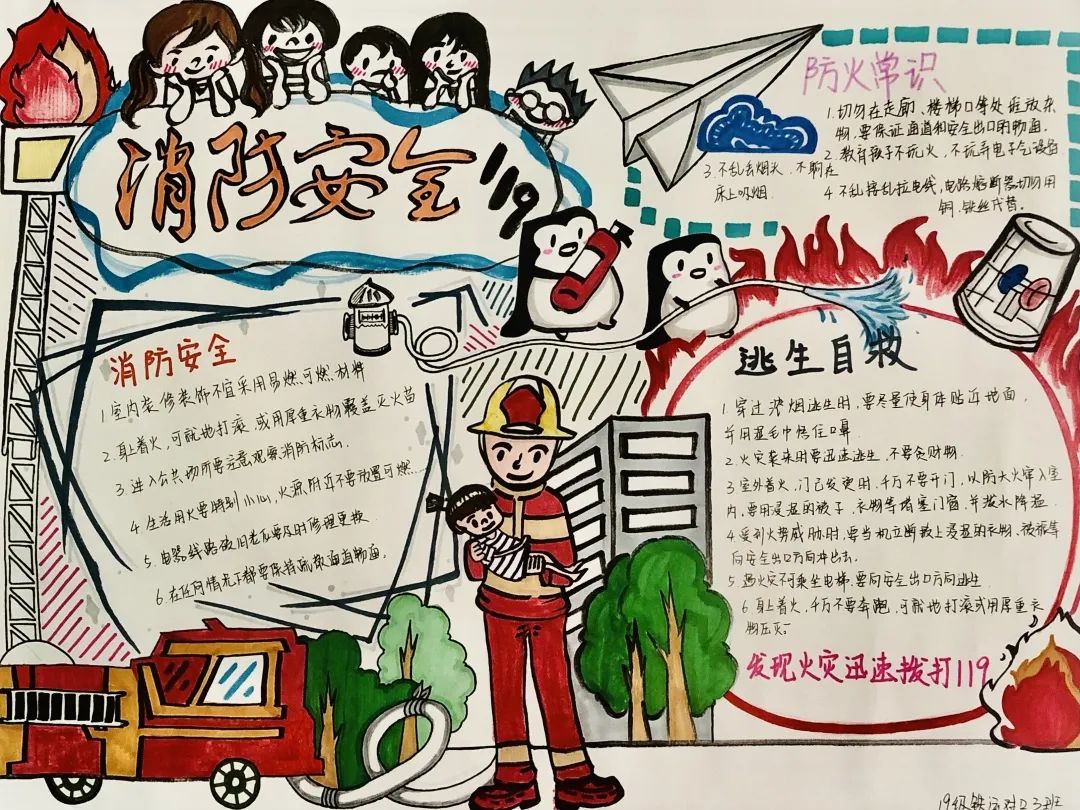 消防安全
119
防火常识
1.切勿在走廊、楼梯口等处堆放杂
物,要保证通道和安全出口的畅通。
2.教育孩子不玩火,不玩弄电子气设备
3.不乱丢烟头,不躺在
床上吸烟.
4 不乱接乱拉电线,电路熔断器切勿用
铜、铁丝代替。
消防安全
1 室内装修装饰不宜采用易燃可燃材料
2.身上着火,可就地打滚,或用厚重衣物覆盖灭火苗
3.进入公共场所要注意观察消防标志.
4 生活用火要特别小心,火源附近不要放置可燃...
5.电器线路破旧老化要及时修理更换
6.在任何情况下都要保持疏散通道畅通。
逃生自救
1 穿过浓烟逃生时,要尽量使身体贴近地面,
并用湿毛巾捂住口鼻.
2.火灾袭来时要迅速逃生,不要贪财物.
3 室外着火,门已发烫时,千万不要开门,以防大火窜入室
内,要用浸湿的被子、衣物等堵塞门窗,并泼水降温.
4 受到火势威胁时,要当机立断披上浸湿的衣物、被褥等
向安全出口方向冲出去。
5 遇火灾不可乘坐电梯,要向安全出口方向逃生
6 身上着火,千万不要奔跑,可就地打滚或用厚重衣
物压灭。
发现火灾迅速拨打119
19级铁 3班